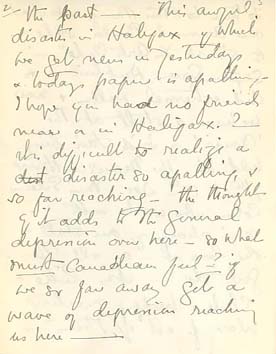 2/ the past — This awful
disaster in Halifax of which
we got news in yesterday
& todays paper is apalling —
I hope you had no friends
near or in Halifax.? —
This difficult to realize a
dist disaster so apalling, &
so far reaching — the thought
of it adds to the general
depression over here — so what
must Canadians feel? if
we so far away get a
wave of depression reaching
us here —